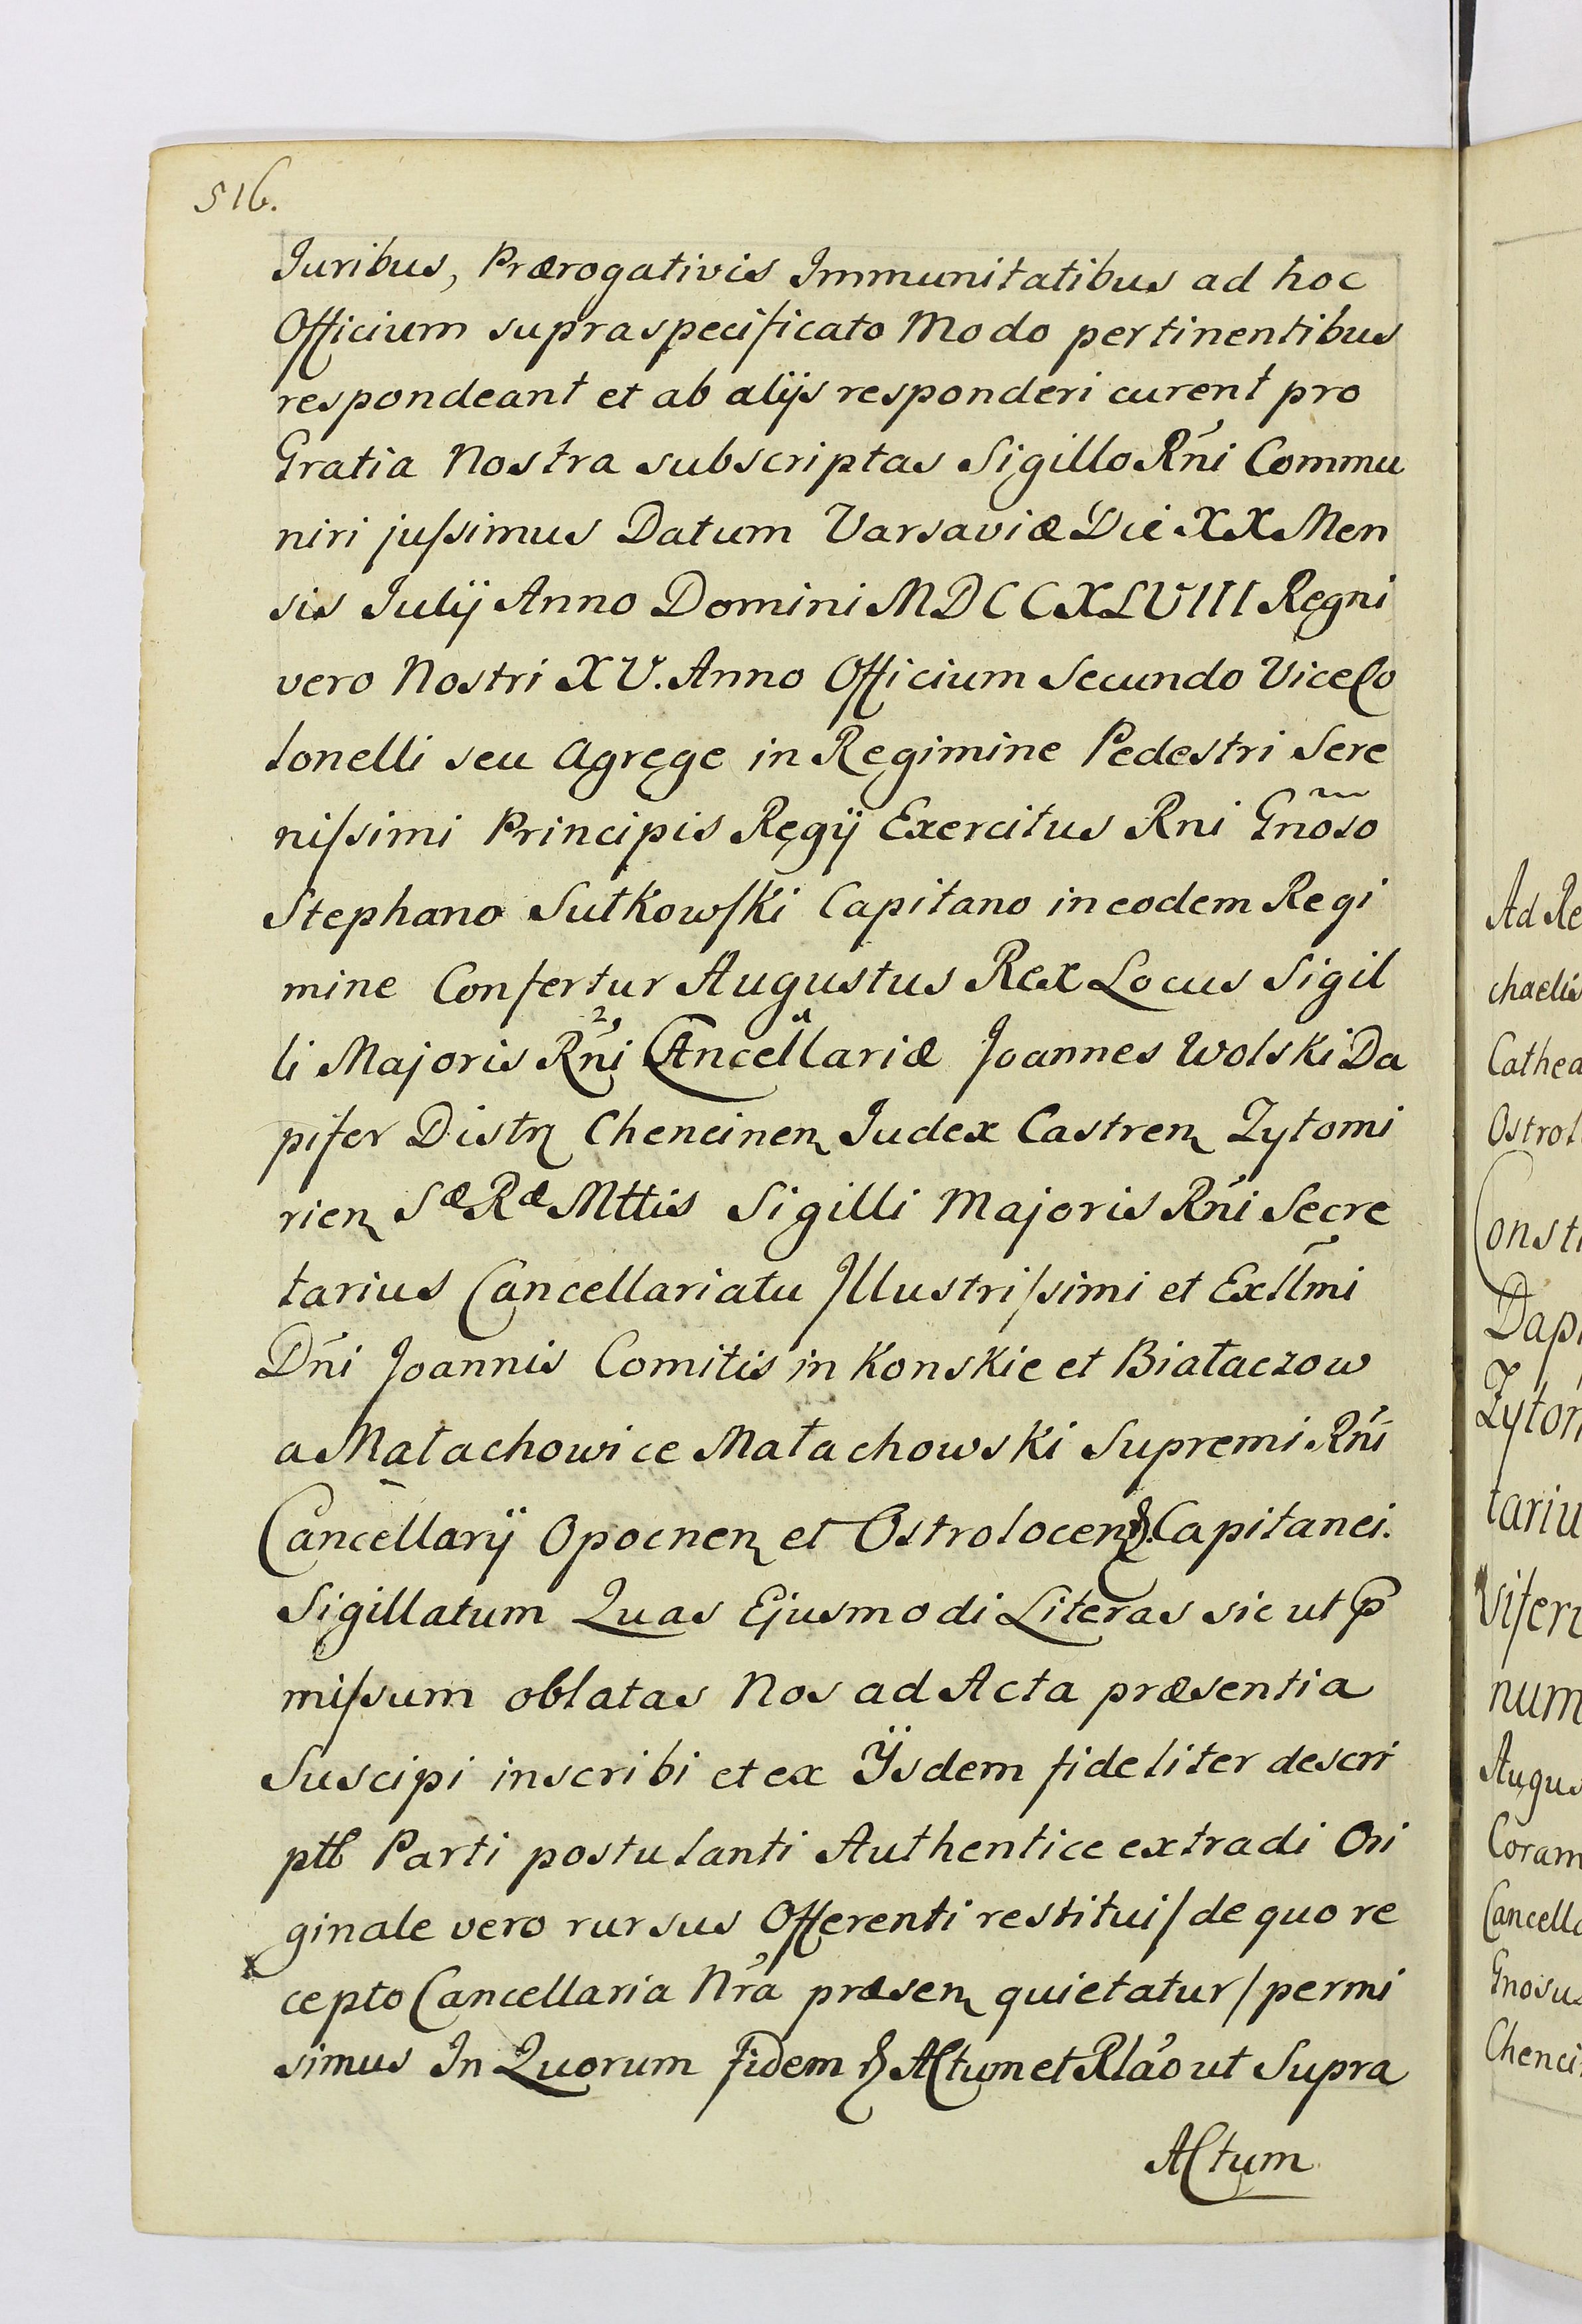 516.
Juribus, Prærogativis Immunitatibus ad hoc
Officium supraspecificato Modo pertinentibus
respondeant et ab alijs responderi curent pro
Gratia Nostra subscriptas Sigillo Rńi Commu
niri juſsimus Datum Varsaviæ Die XX Men
sis Julij Anno Domini MDCCXLVIII Regni
vero Nostri XV. Anno Officium Secundo ViceCo
lonelli seu Agrege in Regimine Pedestri Sere
niſsimi Principis Regij Exercitus Rni Gnoso
Stephano Sułkowſki Capitano in eodem Regi
mine Confertur Augustus Rex Locus Sigil
li Majoris Rńi Cancellariæ Joannes Wolski Da
pifer Distr Chencinen Judex Castren Zytomi
rien Sæ Ræ Mttis Sigilli Majoris Rńi Secre
tarius Cancellariatu Jllustriſsimi et Exllmi
Dńi Joannis Comitis in Konskie et Białaczow
a Małachowice Małachowski Supremi Rńi
Cancellarij Opocnen et Ostrolocen Capitanei.
Sigillatum Quas Ejusmodi Literas sic ut p
miſsum oblatas Nos ad Acta præsentia
Suscipi inscribi et ex Ÿsdem fideliter descri
ptb Parti postulanti Authentice extradi Ori
ginale vero rursus Offerenti restitui / de quo re
cepto Cancellaria Nŕa præsen quietatur / permi
simus In Quorum fidem Actum et Rlão ut Supra
Actum
Ad Re
chaelis
Cathed
Ostrol
Consti
Dapi
Zytom
tariu
num
Augus
Coram
Cancella
Gnosus
Chenci